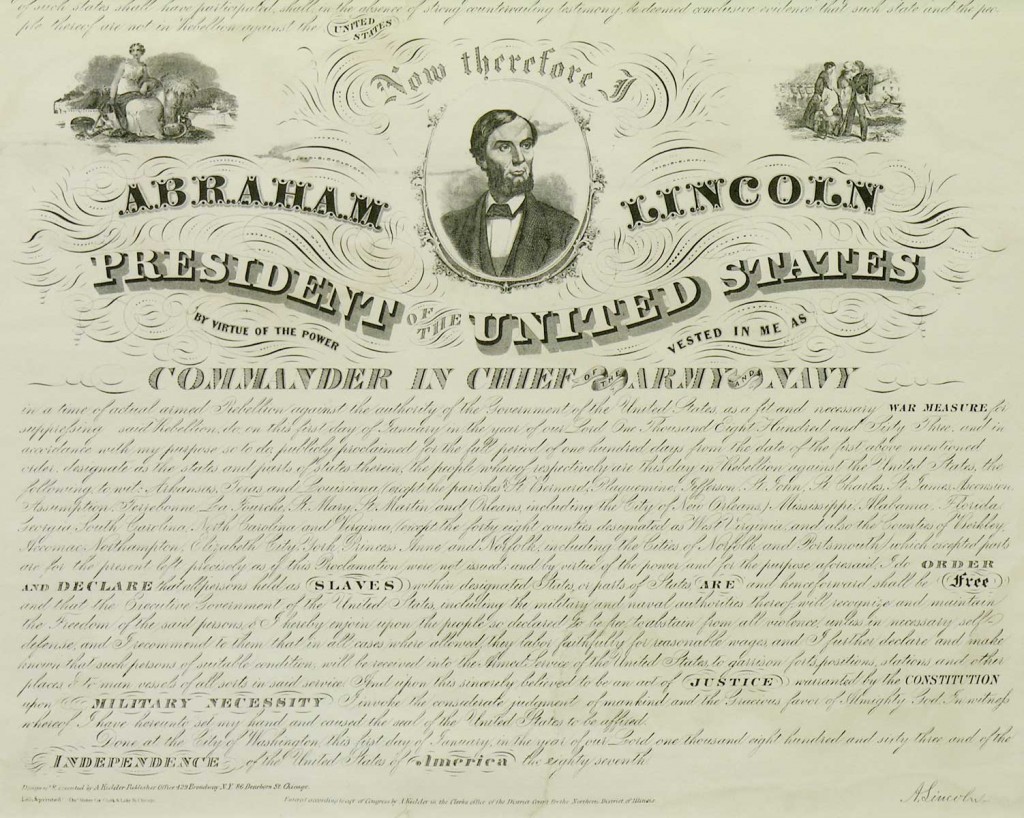 of such states shall have participated, shall, in the absence of strong countervailing testimony, be deemed conclusive evidence that such state and the peo-
ple thereof are not in Rebellion against the UNITED STATES
Now therefore I
ABRAHAM LINCOLN
PRESIDENT OF THE UNITED STATES
BY VIRTUE OF THE POWER VESTED IN ME AS
COMMANDER IN CHIEF OF THE ARMY AND NAVY
in a time of actual armed Rebellion against the authority of the Government of the United States, as a fit and necessary WAR MEASURE for
suppressing said Rebellion, do, on this first day of January in the year of our Lord One Thousand Eight Hundred and Sixty Three, and in
accordance with my purpose so to do, publicly proclaimed for the full period of one hundred days from the date of the first above mentioned
order, designate as the states and parts of states therein, the people whereof respectively are this day in Rebellion against the United States, the
following, to wit: Arkansas, Texas and Louisiana (except the parishes St. Bernard, Plaquemine, Jefferson, St. John, St. Charles, St. James, Ascension,
Assumption, Terrebonne, La Fourche, St. Mary, St. Martin and Orleans, including the City of New Orleans) Mississippi, Alabama, Florida,
Georgia, South Carolina, North Carolina and Virginia, (except the forty eight counties designated as West Virginia, and also the Counties of Berkley,
Accomac, Northampton, Elizabeth City, York, Princess Anne and Norfolk, including the Cities of Norfolk and Portsmouth) which excepted parts
are for the present left precisely as if this Proclamation were not issued; and by virtue of the power and for the purpose aforesaid I do ORDER
AND DECLARE that all persons held as SLAVES within designated States, or parts of States ARE and henceforward shall be Free
and that the Executive Government of the United States, including the military and naval authorities thereof will recognize and maintain
the Freedom of the said persons, & I hereby enjoin upon the people so declared to be free, to abstain from all violence, unless in necessary self-
defense, and I recommend to them that in all cases where allowed, they labor faithfully for reasonable wages, and I further declare and make
known that such persons of suitable condition, will be received into the Armed Service of the United States to garrison forts, positions, stations and other
places, & to man vessels of all sorts in said service. And upon this sincerely believed to be an act of JUSTICE warranted by the CONSTITUTION
upon MILITARY NECESSITY I invoke the considerate judgment of mankind and the Gracious favor of Almighty God. In witness
whereof I have hereunto set my hand and caused the seal of the United States to be affixed.
Done at the City of Washington, this first day of January, in the year of our Lord one thousand eight hundred and sixty three and of the
INDEPENDENCE of the United States of America the eighty seventh.
Designed & executed by A Kidder Publisher Office 429 Broadway N.Y. 86 Dearborn St. Chicago.
Entered according to act of Congress by A Kidder in the Clerks office of the District Court for the Northern District of Illinois
A. Lincoln